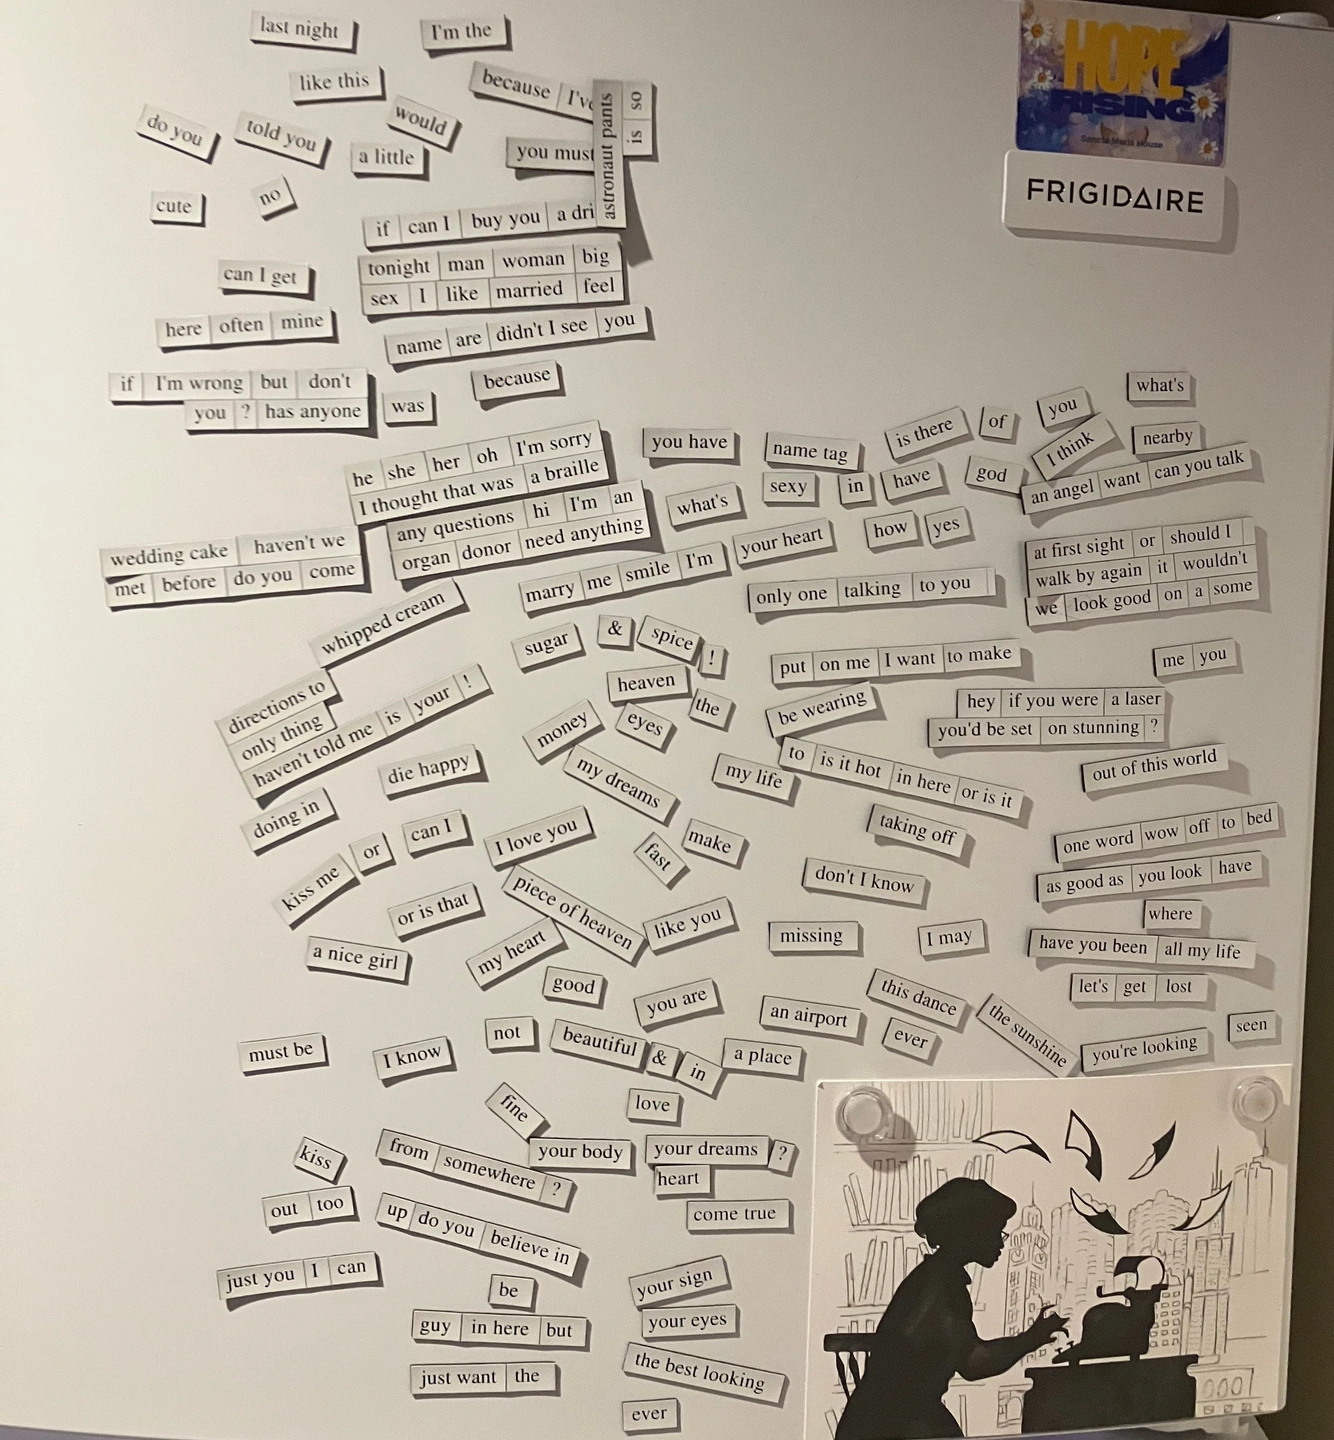 last night
I'm the
like this
because I've
astronaut pants
is so
do you
told you
would
a little
you must
cute
no
if can I buy you a dri
can I get
tonight man woman big
sex I like married feel
here often mine
name are didn't I see you
if I'm wrong but don't
you ? has anyone
was
because
HOPE
RISING
Sancta Maria House
FRIGIDAIRE
what's
you
of
is there
name tag
you have
nearby
I think
he she her oh I'm sorry
I thought that was a braille
any questions hi I'm an
organ donor need anything
what's
sexy
in
have
god
an angel want can you talk
wedding cake haven't we
met before do you come
marry me smile I'm
your heart
how
yes
at first sight or should I
walk by again it wouldn't
we look good on a some
only one talking to you
whipped cream
sugar
&
spice
!
put on me I want to make
me you
heaven
the
be wearing
hey if you were a laser
you'd be set on stunning ?
directions to
only thing
haven't told me is your !
money
eyes
my dreams
my life
to is it hot in here or is it
out of this world
die happy
doing in
can I
or
kiss me
I love you
fast
make
taking off
one word wow off to bed
don't I know
as good as you look have
or is that
piece of heaven
like you
missing
I may
where
have you been all my life
a nice girl
my heart
good
you are
an airport
this dance
let's get lost
the sunshine
seen
must be
I know
not
beautiful
&
in
a place
ever
you're looking
fine
love
kiss
from somewhere ?
your body
your dreams ?
heart
out too
up do you believe in
come true
just you I can
be
your sign
guy in here but
your eyes
just want the
the best looking
ever